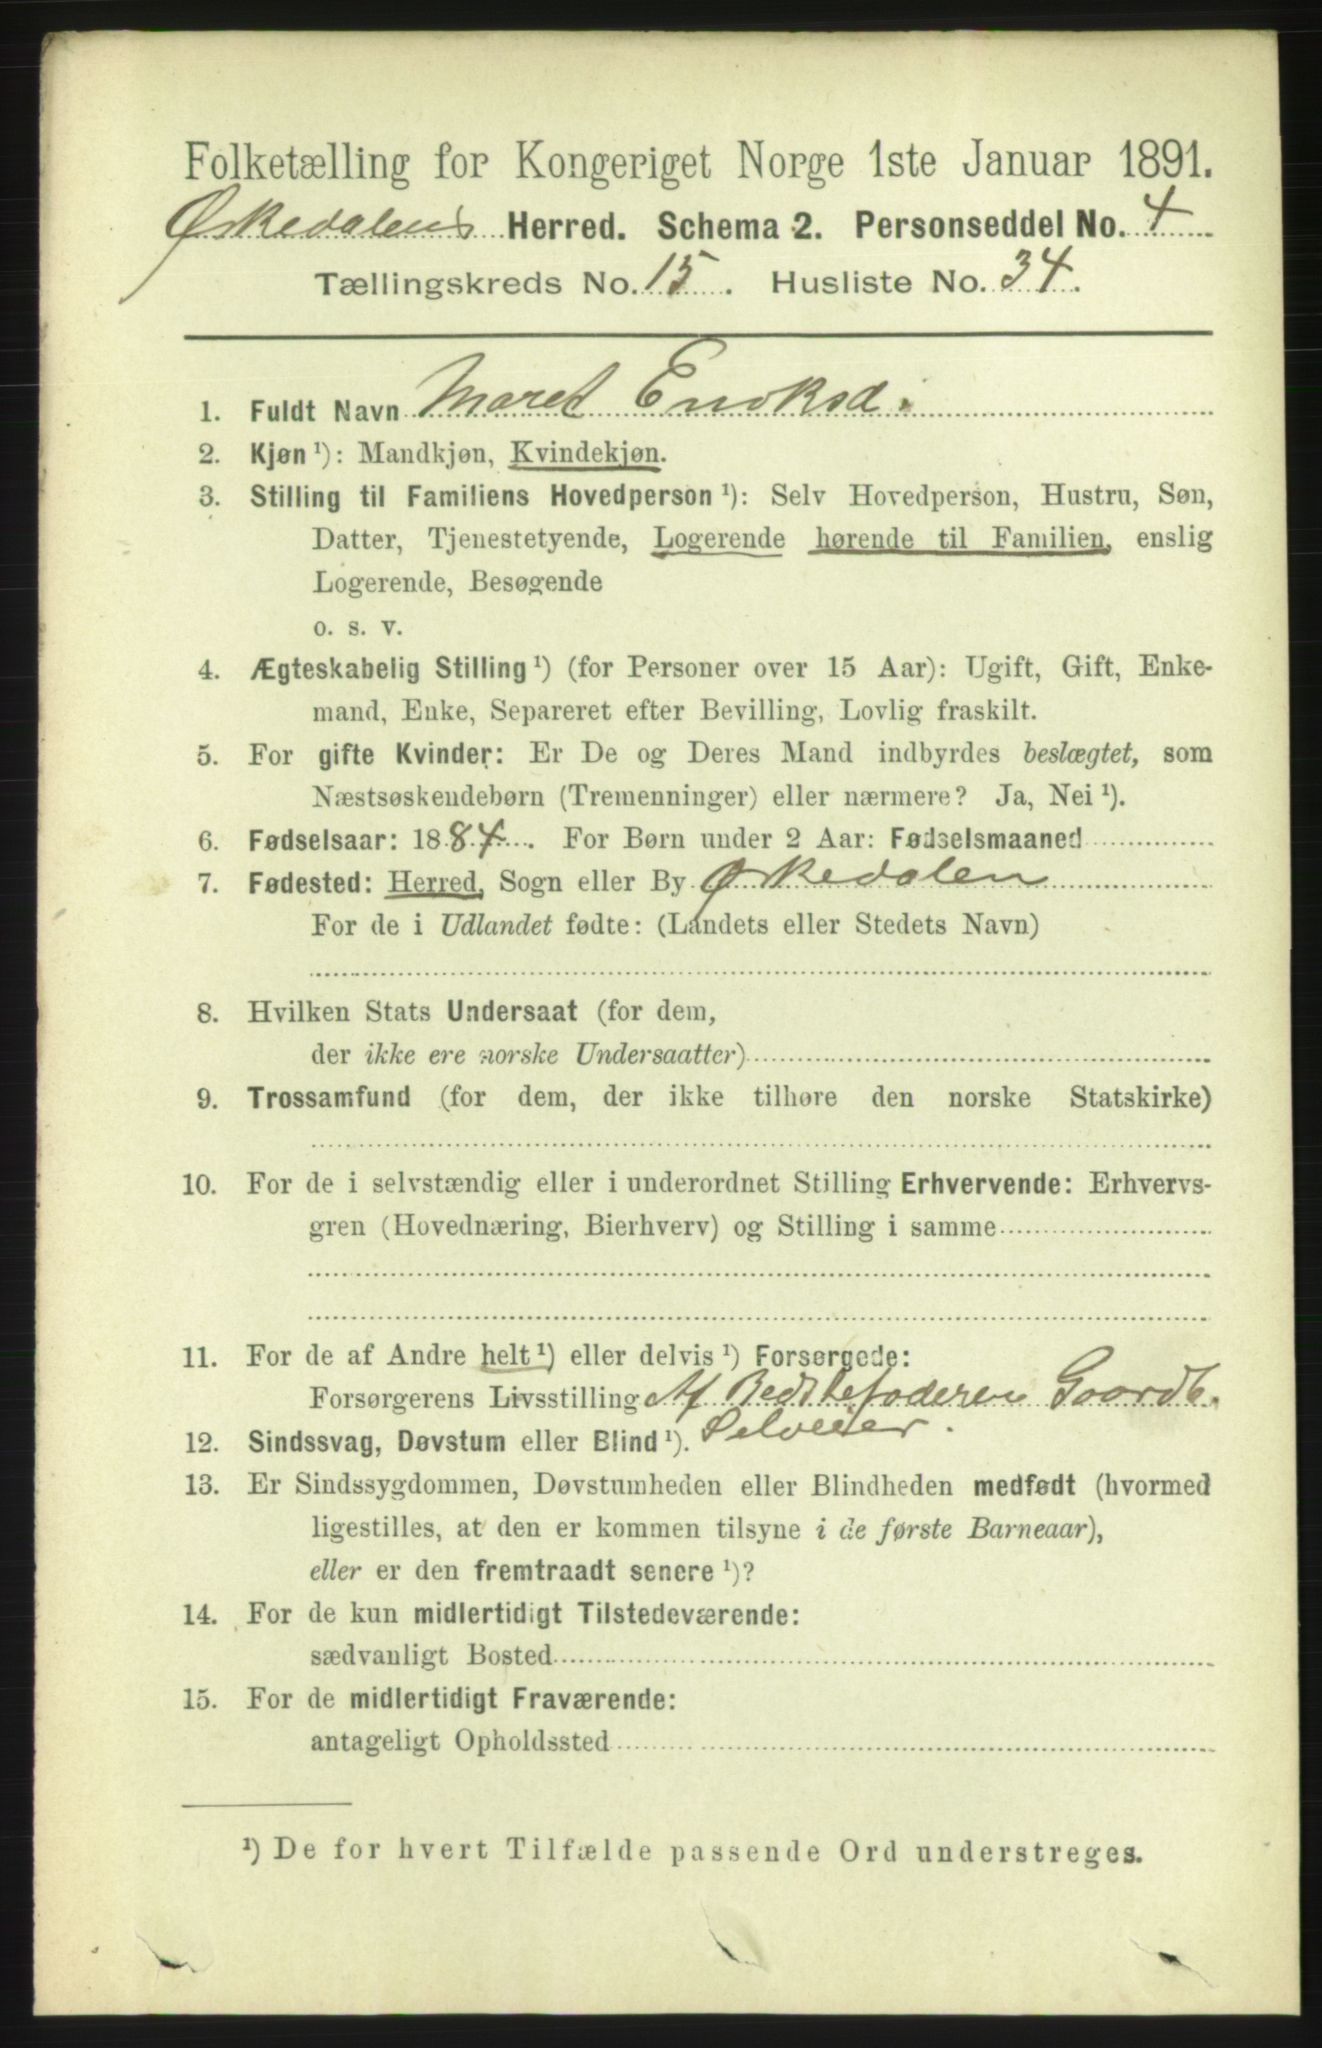 Folketælling for Kongeriget Norge 1ste Januar 1891.
Ørkedalens Herred. Schema 2. Personseddel No. 4
Tællingskreds No. 15. Husliste No. 34.
1. Fuldt Navn Maret Enoksd.
2. Kjøn ¹): Mandkjøn, Kvindekjøn.
3. Stilling til Familiens Hovedperson ¹): Selv Hovedperson, Hustru, Søn,
Datter, Tjenestetyende, Logerende hørende til Familien, enslig
Logerende, Besøgende
o. s. v.
4. Ægteskabelig Stilling ¹) (for Personer over 15 Aar): Ugift, Gift, Enke-
mand, Enke, Separeret efter Bevilling, Lovlig fraskilt.
5. For gifte Kvinder: Er De og Deres Mand indbyrdes beslægtet, som
Næstsøskendebørn (Tremenninger) eller nærmere? Ja, Nei ¹).
6. Fødselsaar: 1884. For Børn under 2 Aar: Fødselsmaaned
7. Fødested: Herred, Sogn eller By Ørkedalen
For de i Udlandet fødte: (Landets eller Stedets Navn)
8. Hvilken Stats Undersaat (for dem,
der ikke ere norske Undersaatter)
9. Trossamfund (for dem, der ikke tilhøre den norske Statskirke)
10. For de i selvstændig eller i underordnet Stilling Erhvervende: Erhvervs-
gren (Hovednæring, Bierhverv) og Stilling i samme
11. For de af Andre helt ¹) eller delvis ¹) Forsørgede:
Forsørgerens Livsstilling Af Bedstefaderen Gaardb.
Selveier.
12. Sindssvag, Døvstum eller Blind ¹).
13. Er Sindssygdommen, Døvstumheden eller Blindheden medfødt (hvormed
ligestilles, at den er kommen tilsyne i de første Barneaar),
eller er den fremtraadt senere ¹)?
14. For de kun midlertidigt Tilstedeværende:
sædvanligt Bosted
15. For de midlertidigt Fraværende:
antageligt Opholdssted
¹) De for hvert Tilfælde passende Ord understreges.